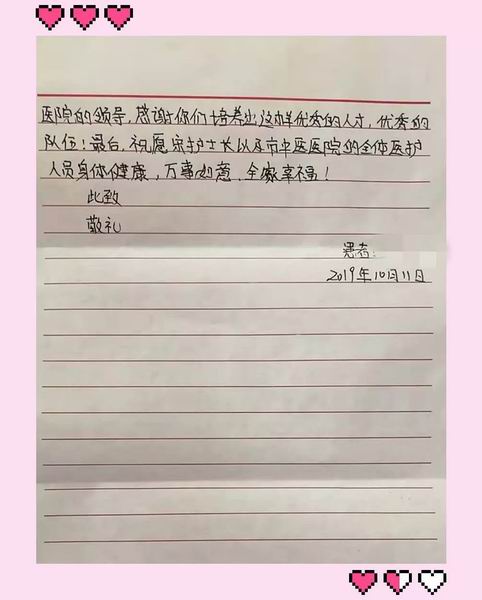 医院的领导,感谢你们培养出这样优秀的人才,优秀的
队伍!最后,祝愿宋护士长以及市中医医院的全体医护
人员身体健康,万事如意,全家幸福!
此致
敬礼
患者:
2019年10月11日